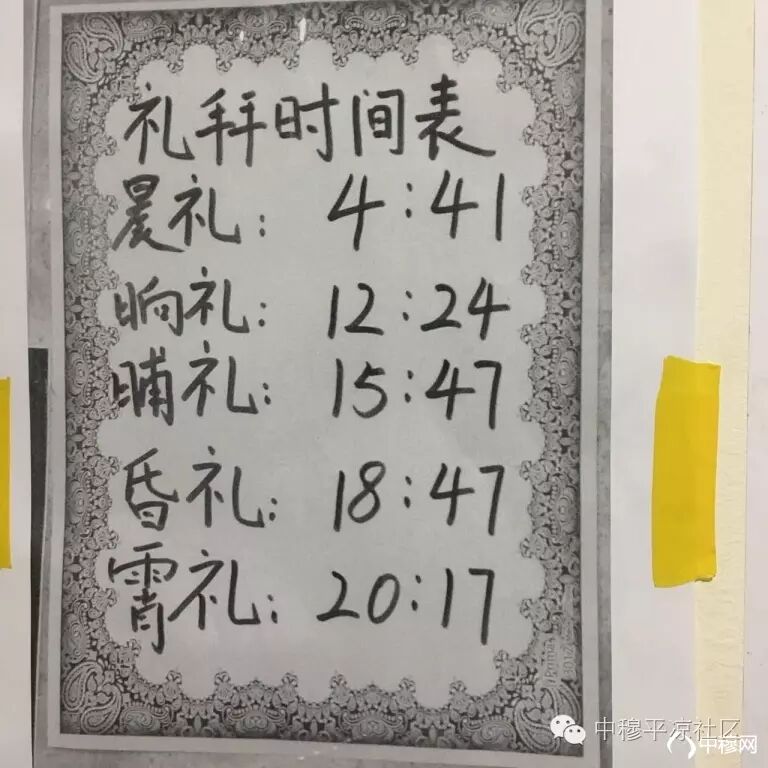 礼拜时间表
晨礼: 4:41
晌礼: 12:24
晡礼: 15:47
昏礼: 18:47
霄礼: 20:17
中穆平凉社区
中穆网